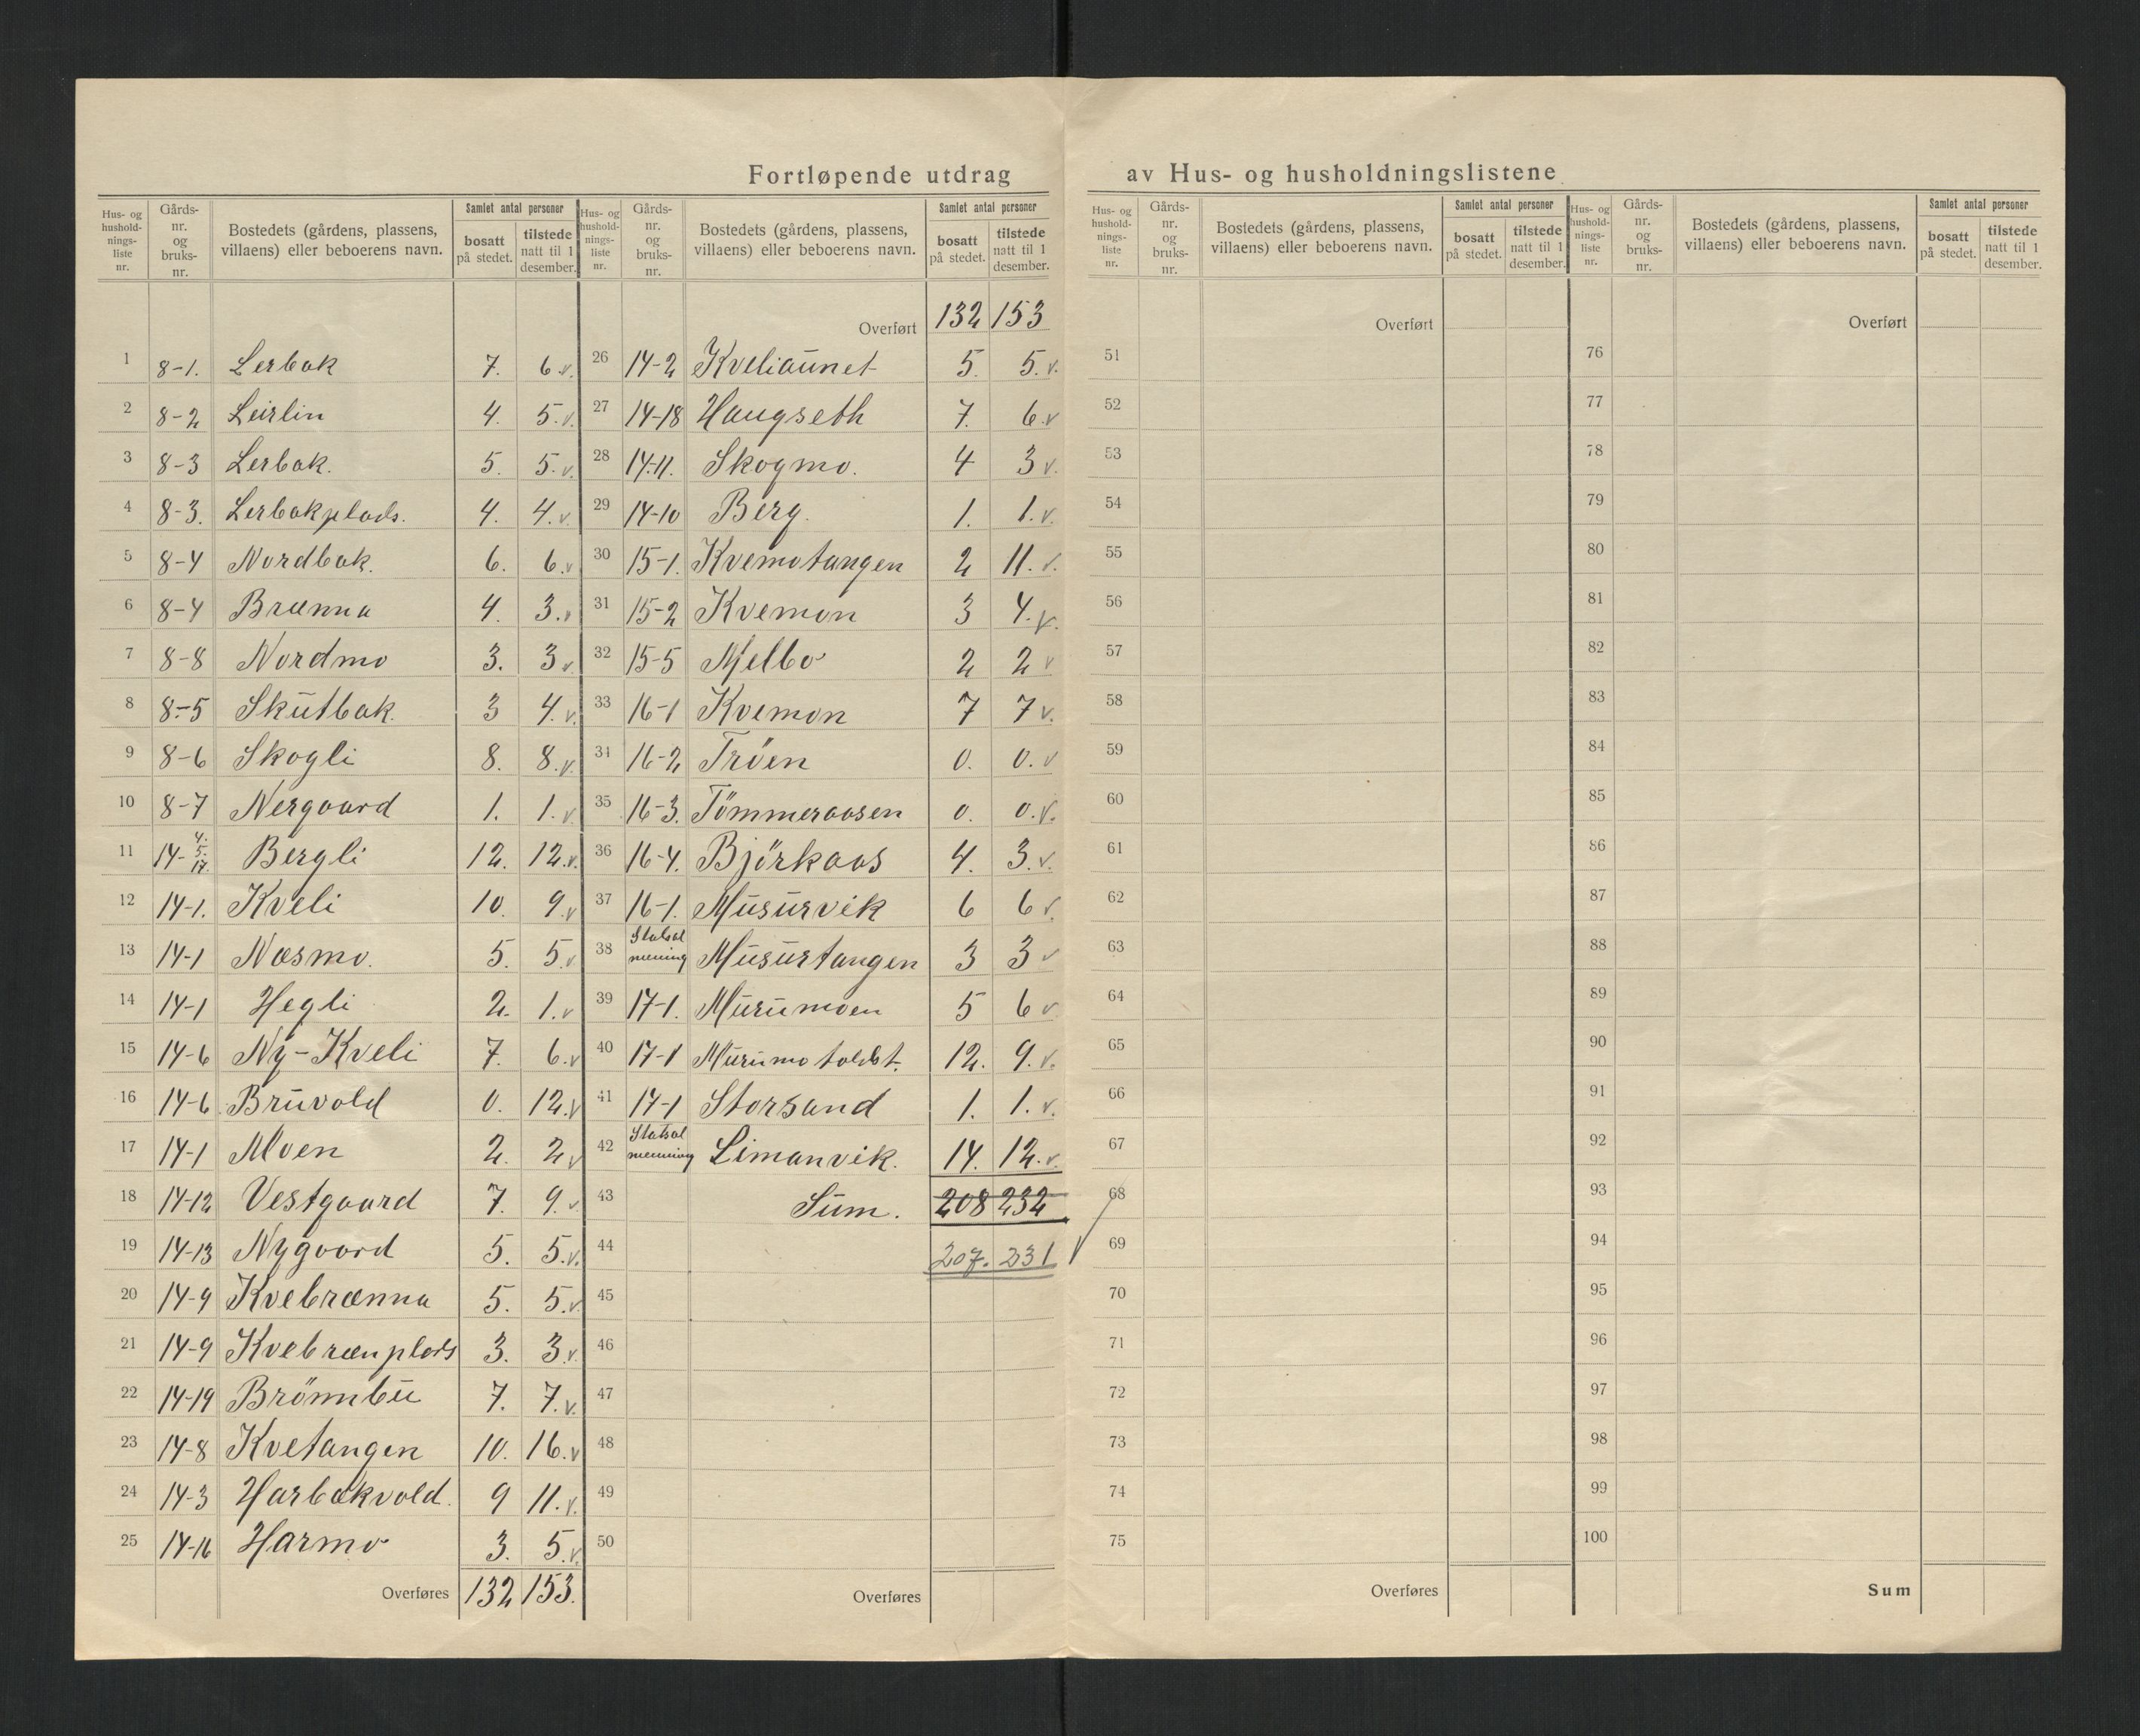 Fortløpende utdrag av Hus- og husholdningslistene
Hus- og hushold- nings- liste nr. Gårds- nr. og bruks- nr. Bostedets (gårdens, plassens, villaens) eller beboerens navn. Samlet antal personer bosatt på stedet. tilstede natt til 1 desember.
1 8-1. Lerbak 7. 6 v.
2 8-2 Leirlin 4. 5. v.
3 8-3 Lerbak. 5. 5. v.
4 8-3. Lerbakplads. 4. 4. v.
5 8-4 Nordbak. 6. 6. v
6 8-4 Brænna 4. 3. v
7 8-8 Nordmo 3. 3 v
8 8-5 Skutbak. 3 4. v.
9 8-6 Skogli 8. 8. v.
10 8-7 Nergaard 1. 1. v
11 14- 4. 5. 17. Bergli 12. 12. v.
12 14-1. Kveli 10. 9. v
13 14-1 Næsmo. 5. 5. v
14 14-1 Hegli 2. 1. v
15 14-6 Ny-Kveli 7. 6. v
16 14-6 Bruvold 0. 12. v
17 14-1 Moen 2. 2 v
18 14-12 Vestgaard 7. 9. v
19 14-13 Nygaard 5. 5. v.
20 14-9 Kvebrænna 5. 5. v
21 14-9 Kvebrænplads 3. 3 v.
22 14-19 Brönnbu 7. 7. v.
23 14-8 Kvetangen 10. 16. v
24 14-3 Harbakvold. 9 11. v.
25 14-16 Harmo 3. 5. v.
Overføres 132 153.
Hus- og hushold- nings- liste nr. Gårds- nr. og bruks- nr. Bostedets (gårdens, plassens, villaens) eller beboerens navn. Samlet antal personer bosatt på stedet. tilstede natt til 1 desember.
Overført 132 153
26 14-2 Kveliaunet 5. 5. v.
27 14-18 Haugseth 7. 6. v
28 14-11. Skogmo. 4 3 v.
29 14-10 Berg. 1. 1. v.
30 15-1. Kvemotangen 2 11. v.
31 15-2 Kvemon 3 4. v.
32 15-5 Mjelbo 2 2 v
33 16-1 Kvemon 7 7 v.
34 16-2 Tröen 0. 0. v
35 16-3. Tömmeraasen 0. 0. v.
36 16-4. Björkaas 4. 3. v.
37 16-1. Musurvik 6 6 v.
38 Statsal menning Musurtangen 3 3 v
39 17-1. Murumoen 5 6 v
40 17-1 Murumo toldst. 12. 9. v.
41 17-1 Storsand 1. 1. v.
42 Statsal menning Limanvik. 14. 12. v.
43 Sum. 208 232
44 207. 231 v
45
46
47
48
49
50
Overføres
Hus- og hushold- nings- liste nr. Gårds- nr. og bruks- nr. Bostedets (gårdens, plassens, villaens) eller beboerens navn. Samlet antal personer bosatt på stedet. tilstede natt til 1 desember.
Overført
51
52
53
54
55
56
57
58
59
60
61
62
63
64
65
66
67
68
69
70
71
72
73
74
75
Overføres
Hus- og hushold- nings- liste nr. Gårds- nr. og bruks- nr. Bostedets (gårdens, plassens, villaens) eller beboerens navn. Samlet antal personer bosatt på stedet. tilstede natt til 1 desember.
Overført
76
77
78
79
80
81
82
83
84
85
86
87
88
89
90
91
92
93
94
95
96
97
98
99
100
Sum